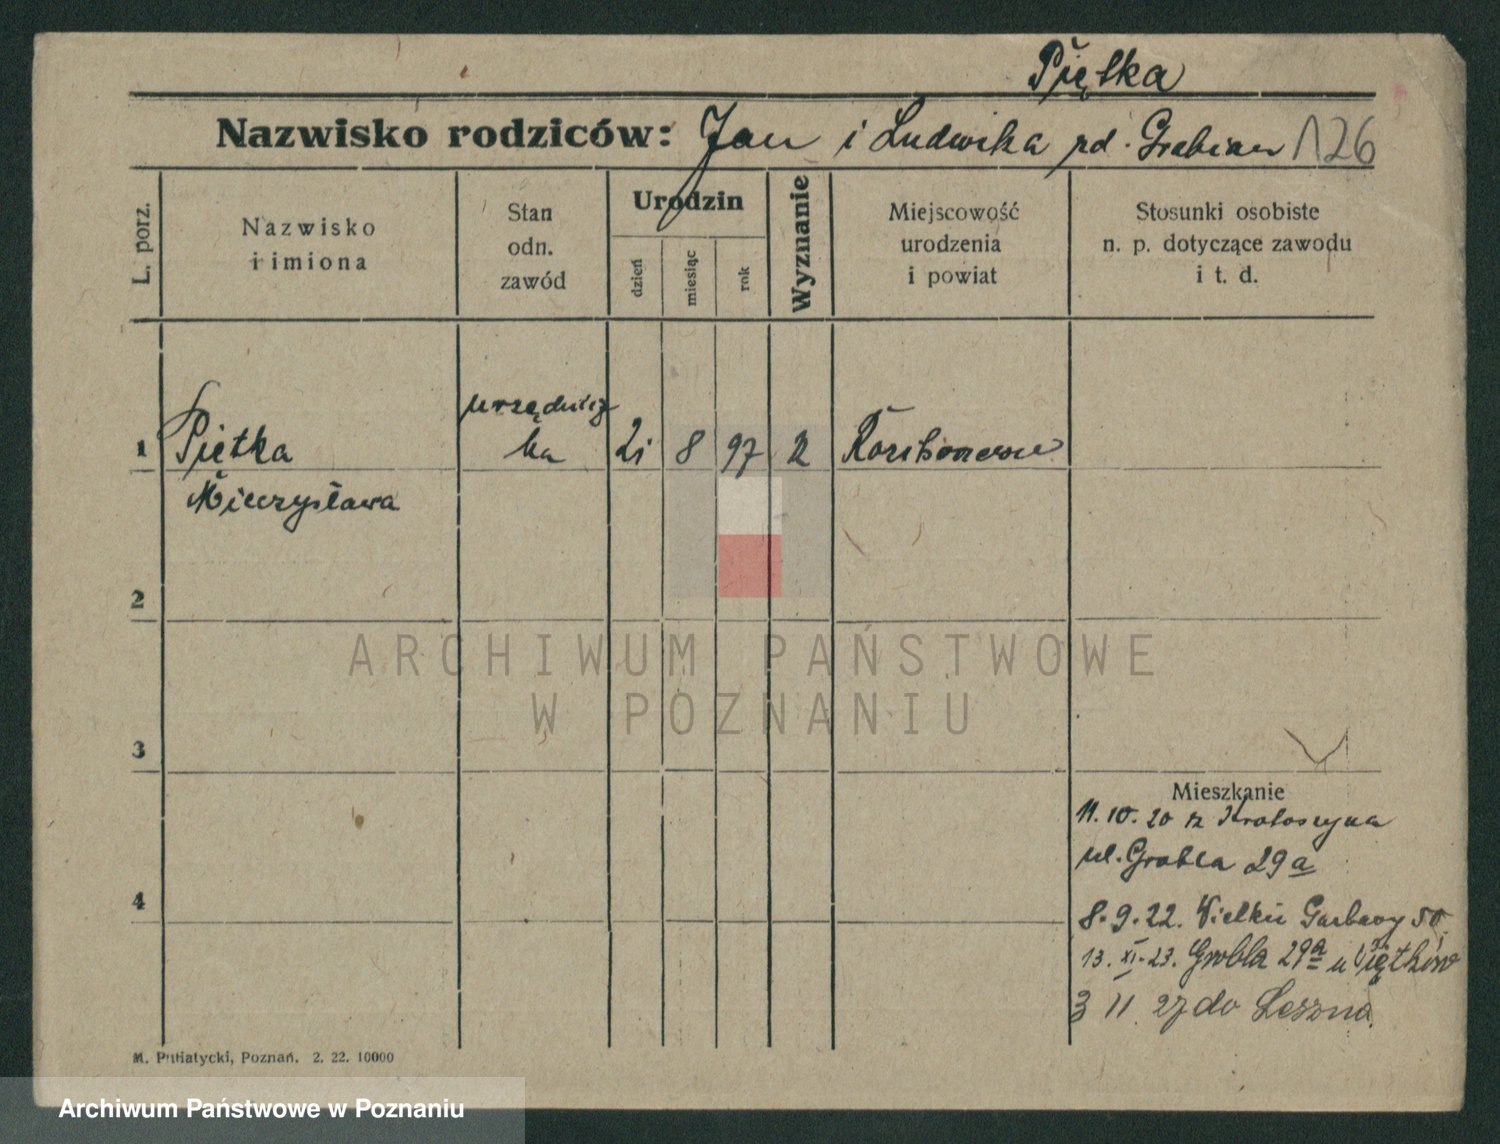 Piętka
Nazwisko rodziców: Jan i Ludwika rd. Grabian 126
L. porz.
Nazwisko
i imiona
Stan
odn.
zawód
Urodzin
dzień
miesiąc
rok
Wyznanie
Miejscowość
urodzenia
i powiat
Stosunki osobiste
n. p. dotyczące zawodu
i t. d.
urzędnicz
1 Piętka ka 21 8 97
Mieczysława
2
3
Mieszkanie
11. 10. 20 z Krotoszyna
ul. Grobla 29a
4
8. 9. 22. Wielkie Garbary 50
13. XI. 23. Grobla 29a u Piętków
3 11 27 do Leszna
M. Putiatycki, Poznań. 2. 22. 10000
ARCHIWUM PAŃSTWOWE
W POZNANIU
Archiwum Państwowe w Poznaniu